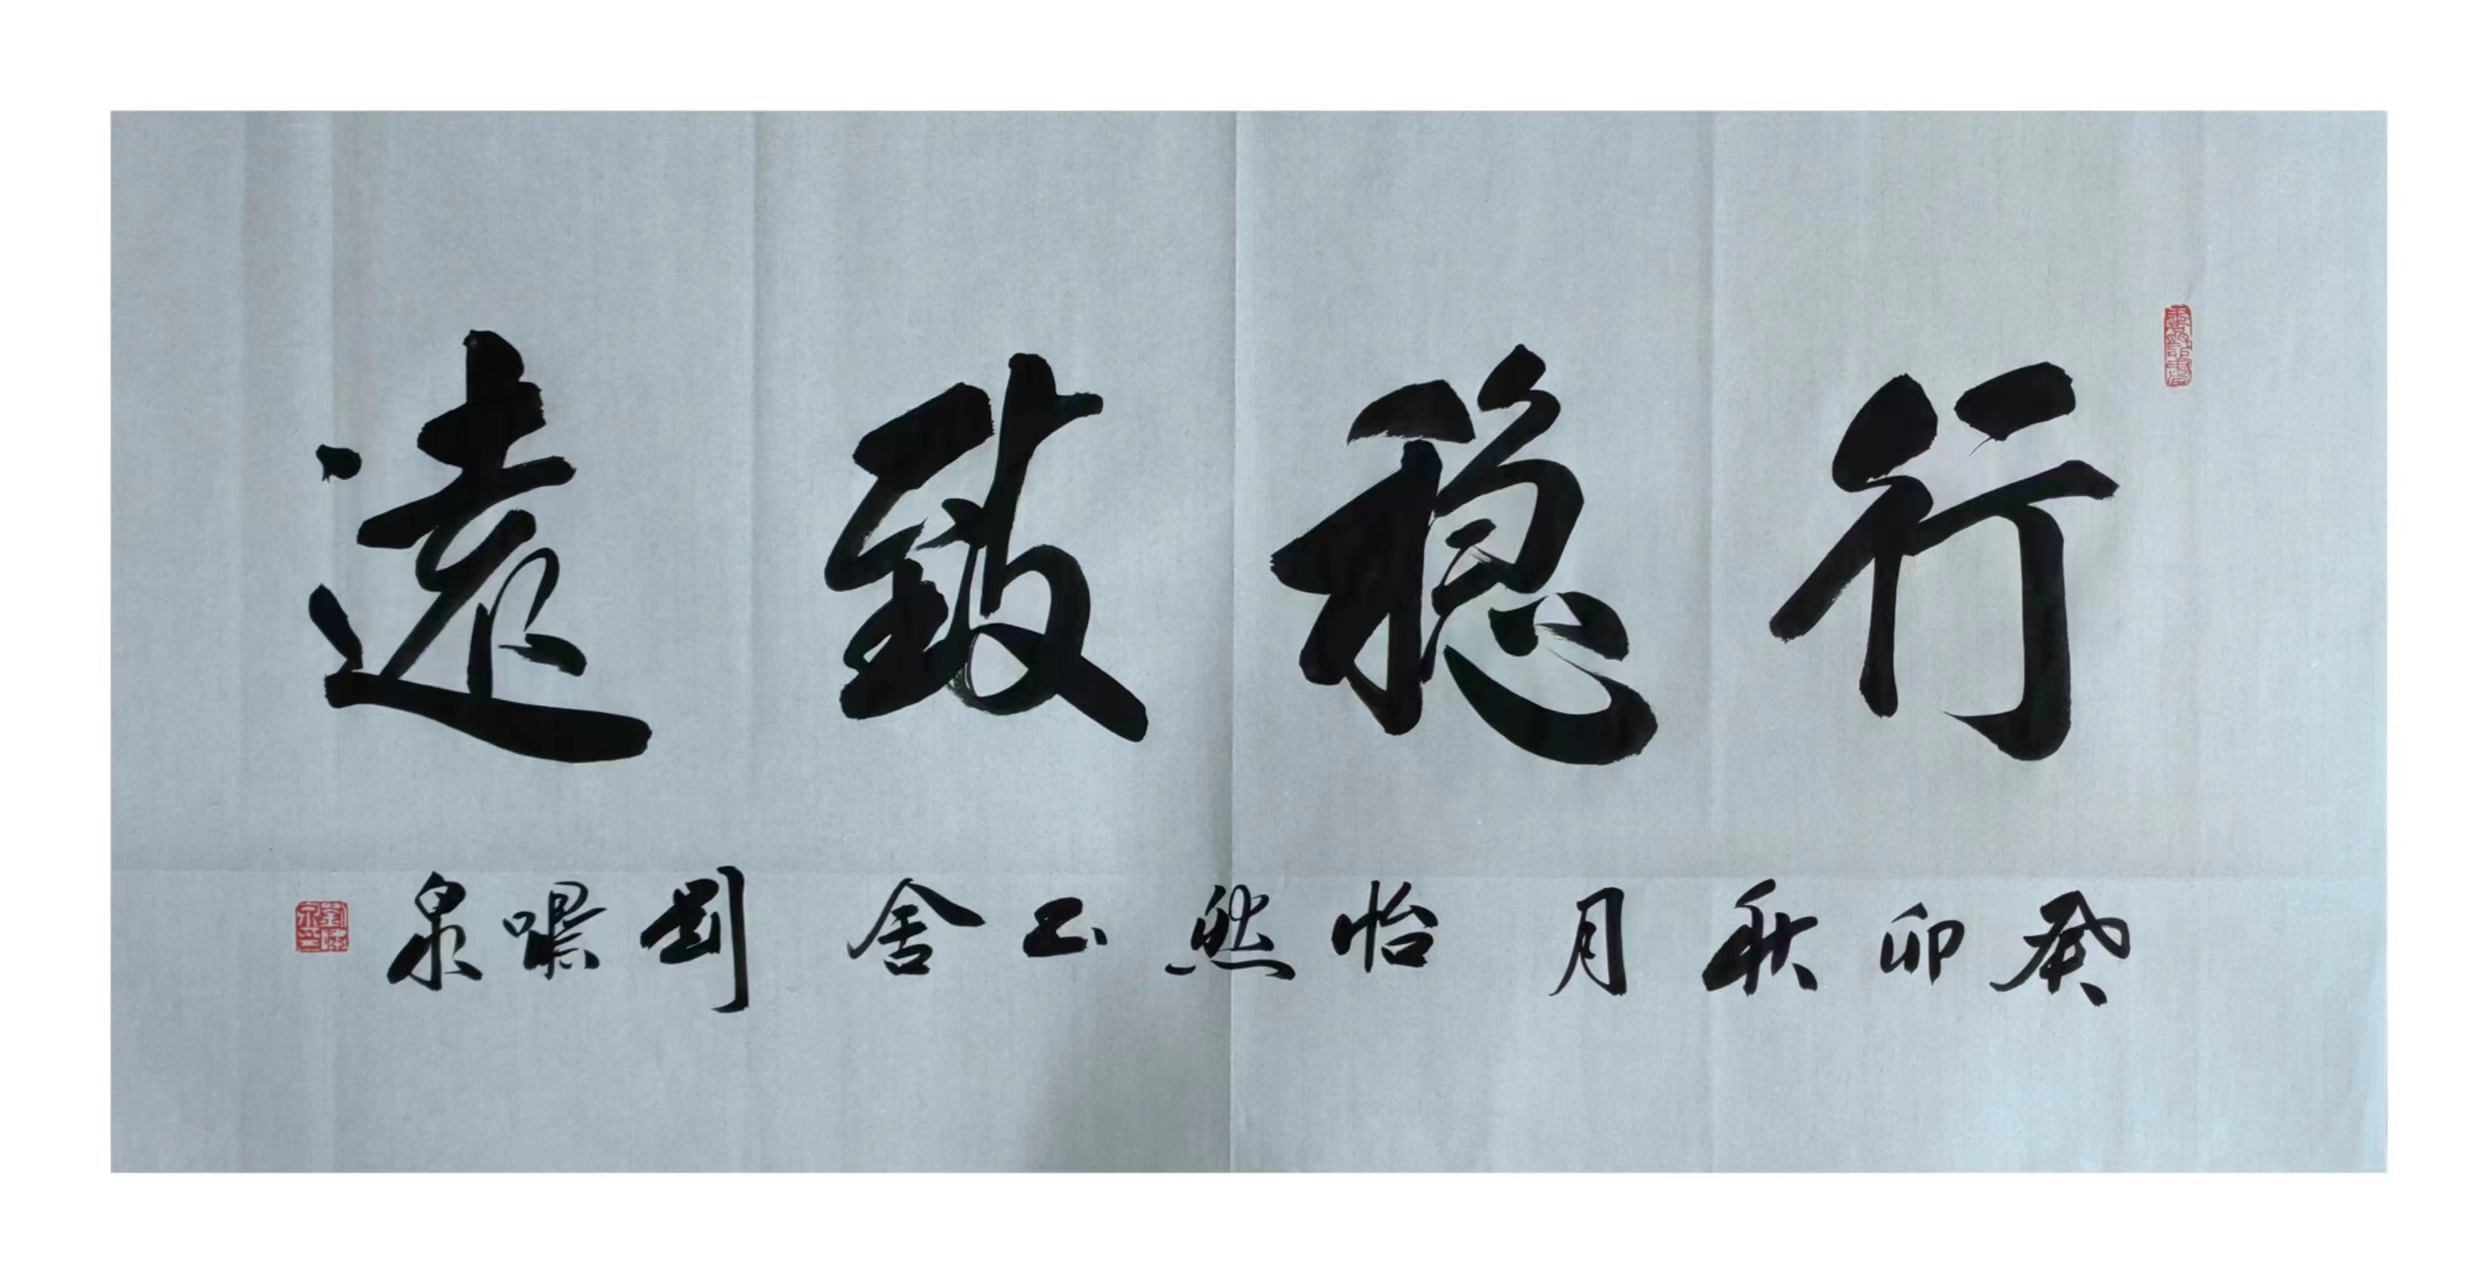 行稳致遠
癸卯秋月 怡然舍 劉泉